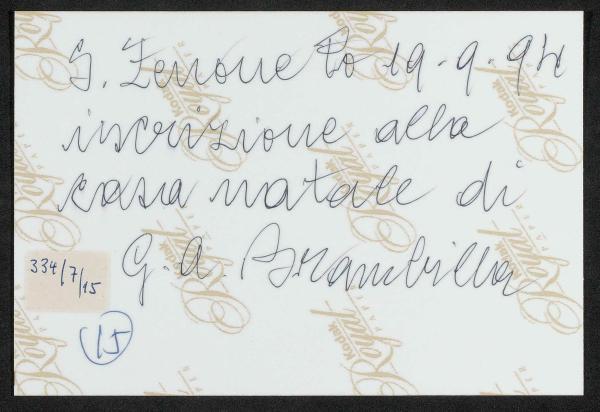 S. Zenone Po 19-9-94
inscrizione alla
casa natale di
G. A. Brambilla
334/7/15
15
Kodak
Royal
PAPER